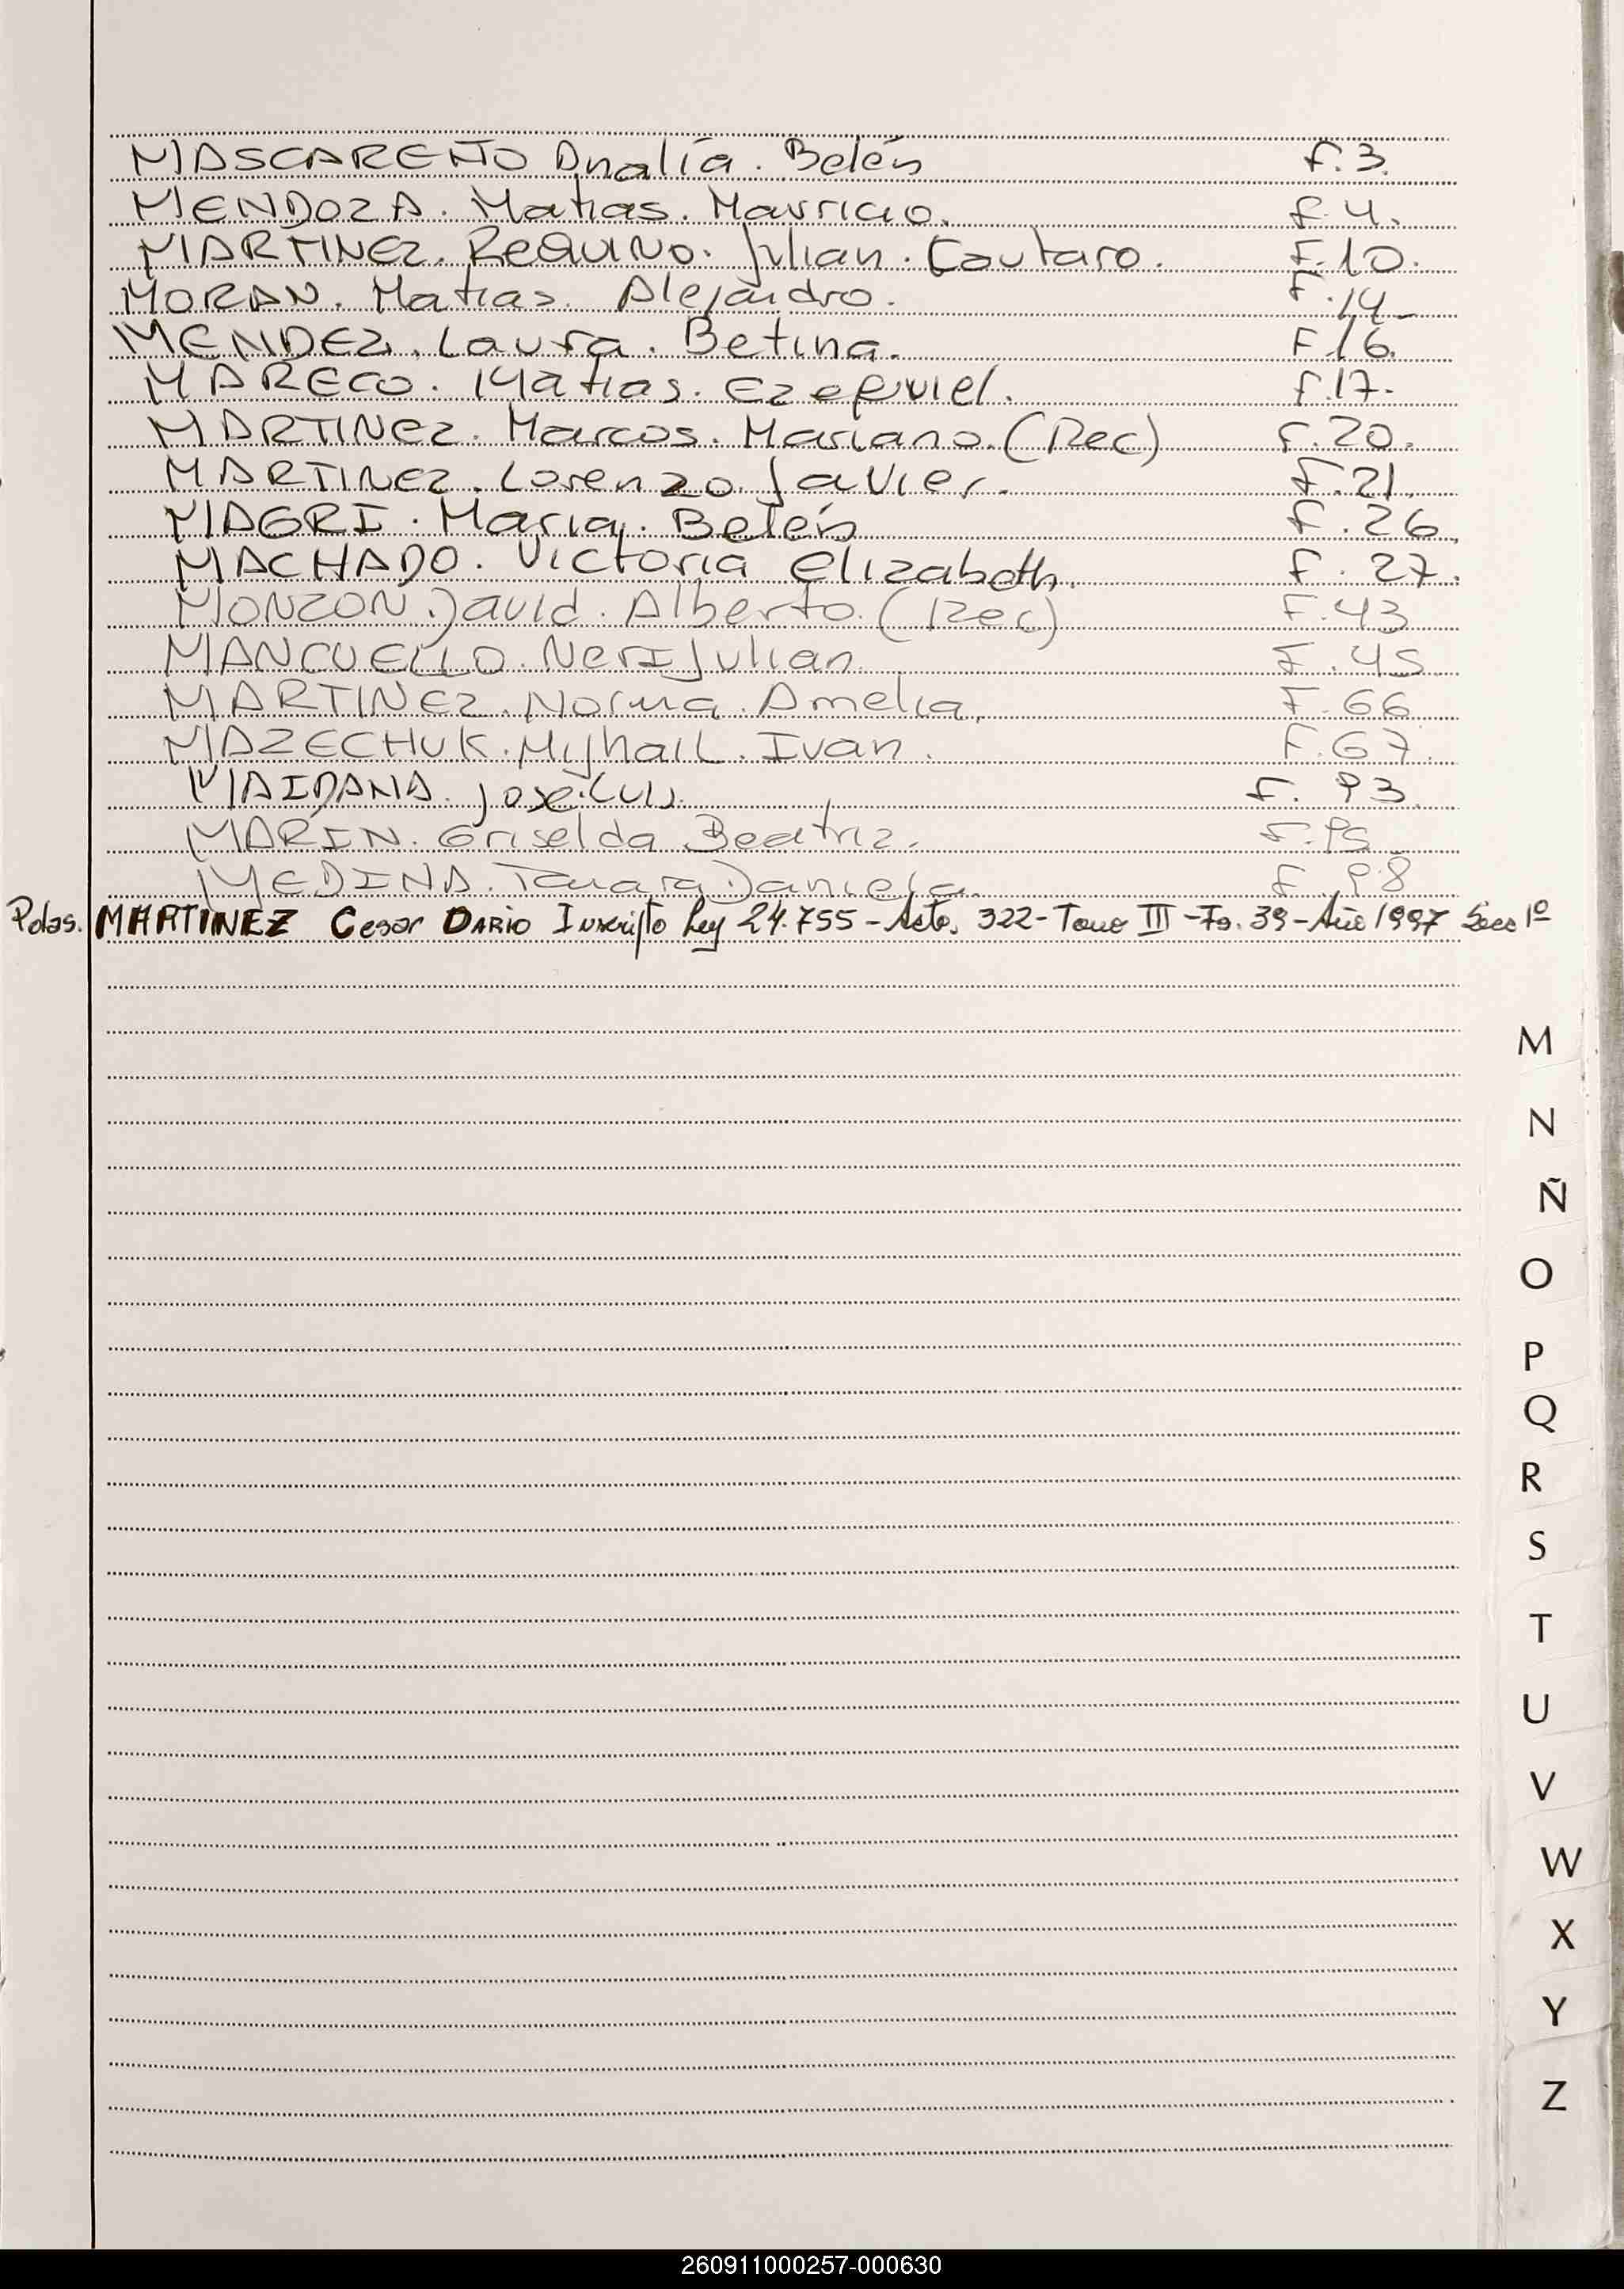 MASCAREÑO Analía. Belén f.3.
MENDOZA. Matias. Mauricio. f.4.
MARTINEZ. ReQUINO. Julian. Lautaro. F.10.
MORAN. Matias. Alejandro. F.14-
MENDEZ. Laura. Betina. F.16.
MARECO. Matias. Ezequiel. f.17.
MARTINEZ. Marcos. Mariano. (Rec) F.20.
MARTINEZ. Lorenzo. Javier. F.21.
MAGRI. Maria. Belén f.26,
MACHADO. Victoria elizabeth. f.27.
MONZON. David. Alberto. (Rec) F.43
MANCUELLO. Neri Julian. F.45
MARTINEZ. Norma. Amelia. F.66
MAZECHUK. Myhail. Ivan. F.67.
MAIDANA. José. Luis. F. 93.
MARIN. Griselda Beatriz. F.95
MEDINA. Tamara Daniela. F.98
Pdas. MARTINEZ Cesar DARIO Inscripto Ley 24.755 - Acta. 322 - Tomo III - Fo. 39 - Año 1997 Secc 1º
M
N
Ñ
O
P
Q
R
S
T
U
V
W
X
Y
Z
260911000257-000630